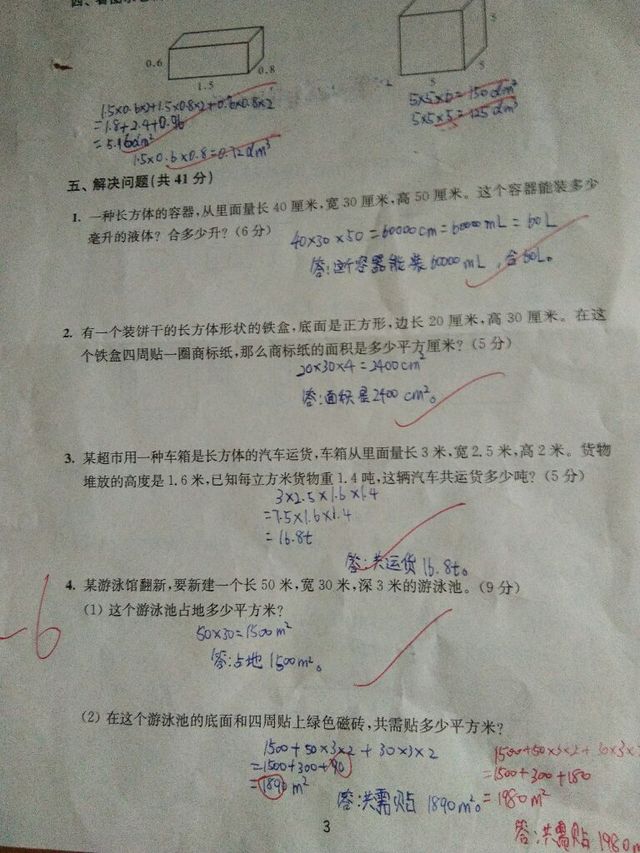 0.6
1.5
0.8
5
5
1.5×0.6×2+1.5×0.8×2+0.6×0.8×2
=1.8+2.4+0.96
=5.16dm²
1.5×0.6×0.8=0.72dm³
5×5×6=150dm²
5×5×5=125dm³
五、解决问题(共 41 分)
1. 一种长方体的容器,从里面量长 40 厘米,宽 30 厘米,高 50 厘米。这个容器能装多少
毫升的液体?合多少升?(6 分)
40×30×50=60000cm=60000mL=60L
答:这个容器能装60000mL,合60L。
2. 有一个装饼干的长方体形状的铁盒,底面是正方形,边长 20 厘米,高 30 厘米。在这
个铁盒四周贴一圈商标纸,那么商标纸的面积是多少平方厘米?(5 分)
20×30×4=2400cm²
答:面积是2400cm²。
3. 某超市用一种车箱是长方体的汽车运货,车箱从里面量长 3 米,宽 2.5 米,高 2 米。货物
堆放的高度是 1.6 米,已知每立方米货物重 1.4 吨,这辆汽车共运货多少吨?(5 分)
3×2.5×1.6×1.4
=7.5×1.6×1.4
=16.8t
答:共运货16.8t。
4. 某游泳馆翻新,要新建一个长 50 米,宽 30 米,深 3 米的游泳池。(9 分)
-6
(1) 这个游泳池占地多少平方米?
50×30=1500m²
答:占地1500m²。
(2) 在这个游泳池的底面和四周贴上绿色磁砖,共需贴多少平方米?
1500+50×3×2+30×3×2
=1500+300+90
=1890m²
答:共需贴1890m²。
1500+50×3×2+30×3×
=1500+300+180
=1980m²
答:共需贴1980m
3